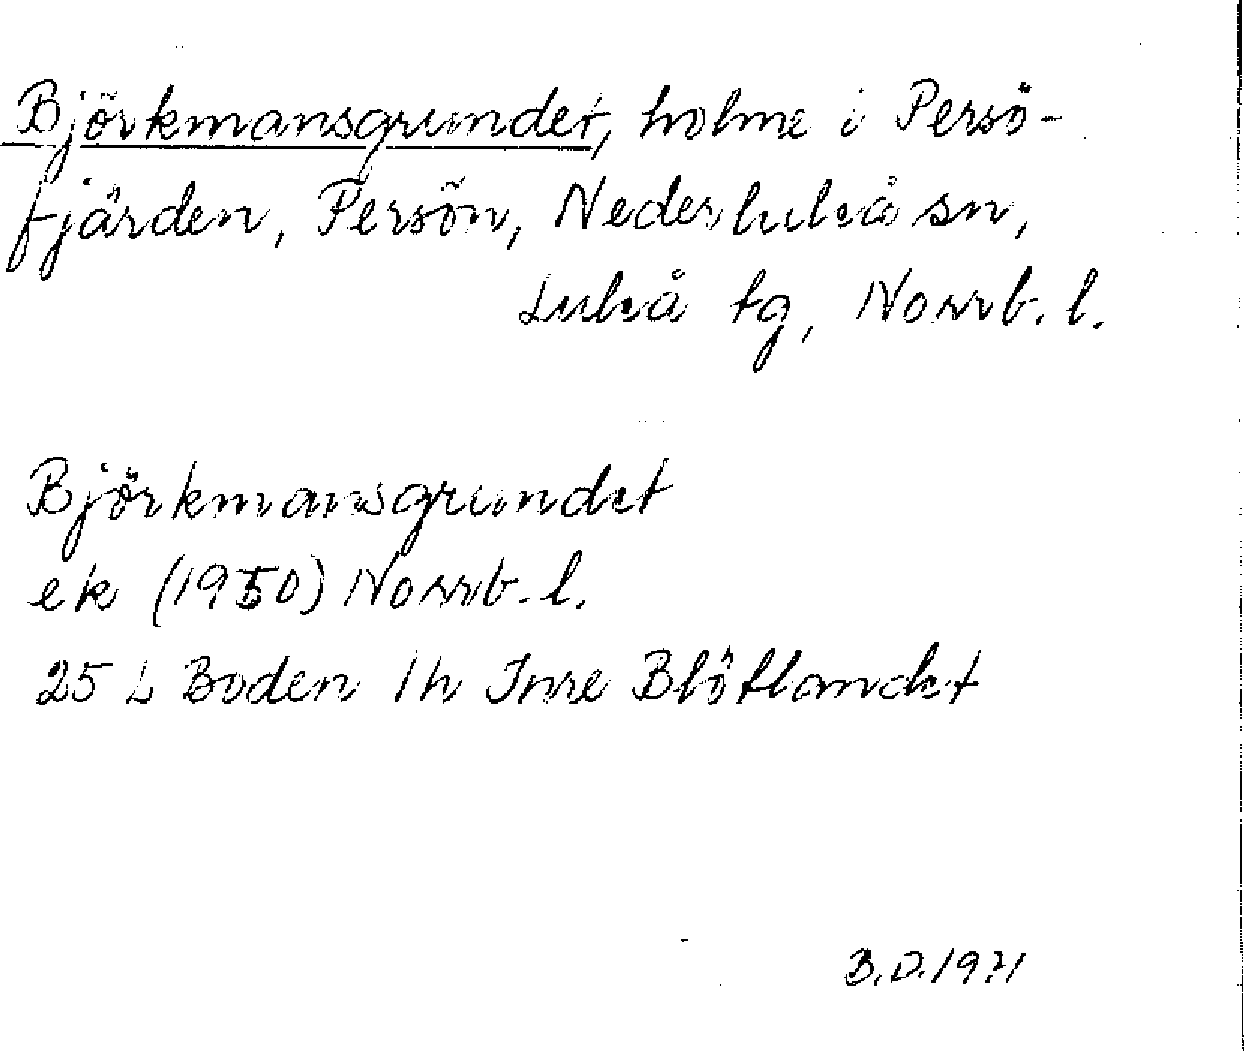 Björkmansgrundet, holme i Persö-
fjärden, Persön, Nederluleå sn,
Luleå tg, Norrb. l.
Björkmansgrundet
ek (1950) Norrb. l.
25 L Boden 1h Inre Blötlandet
B.D. 1971